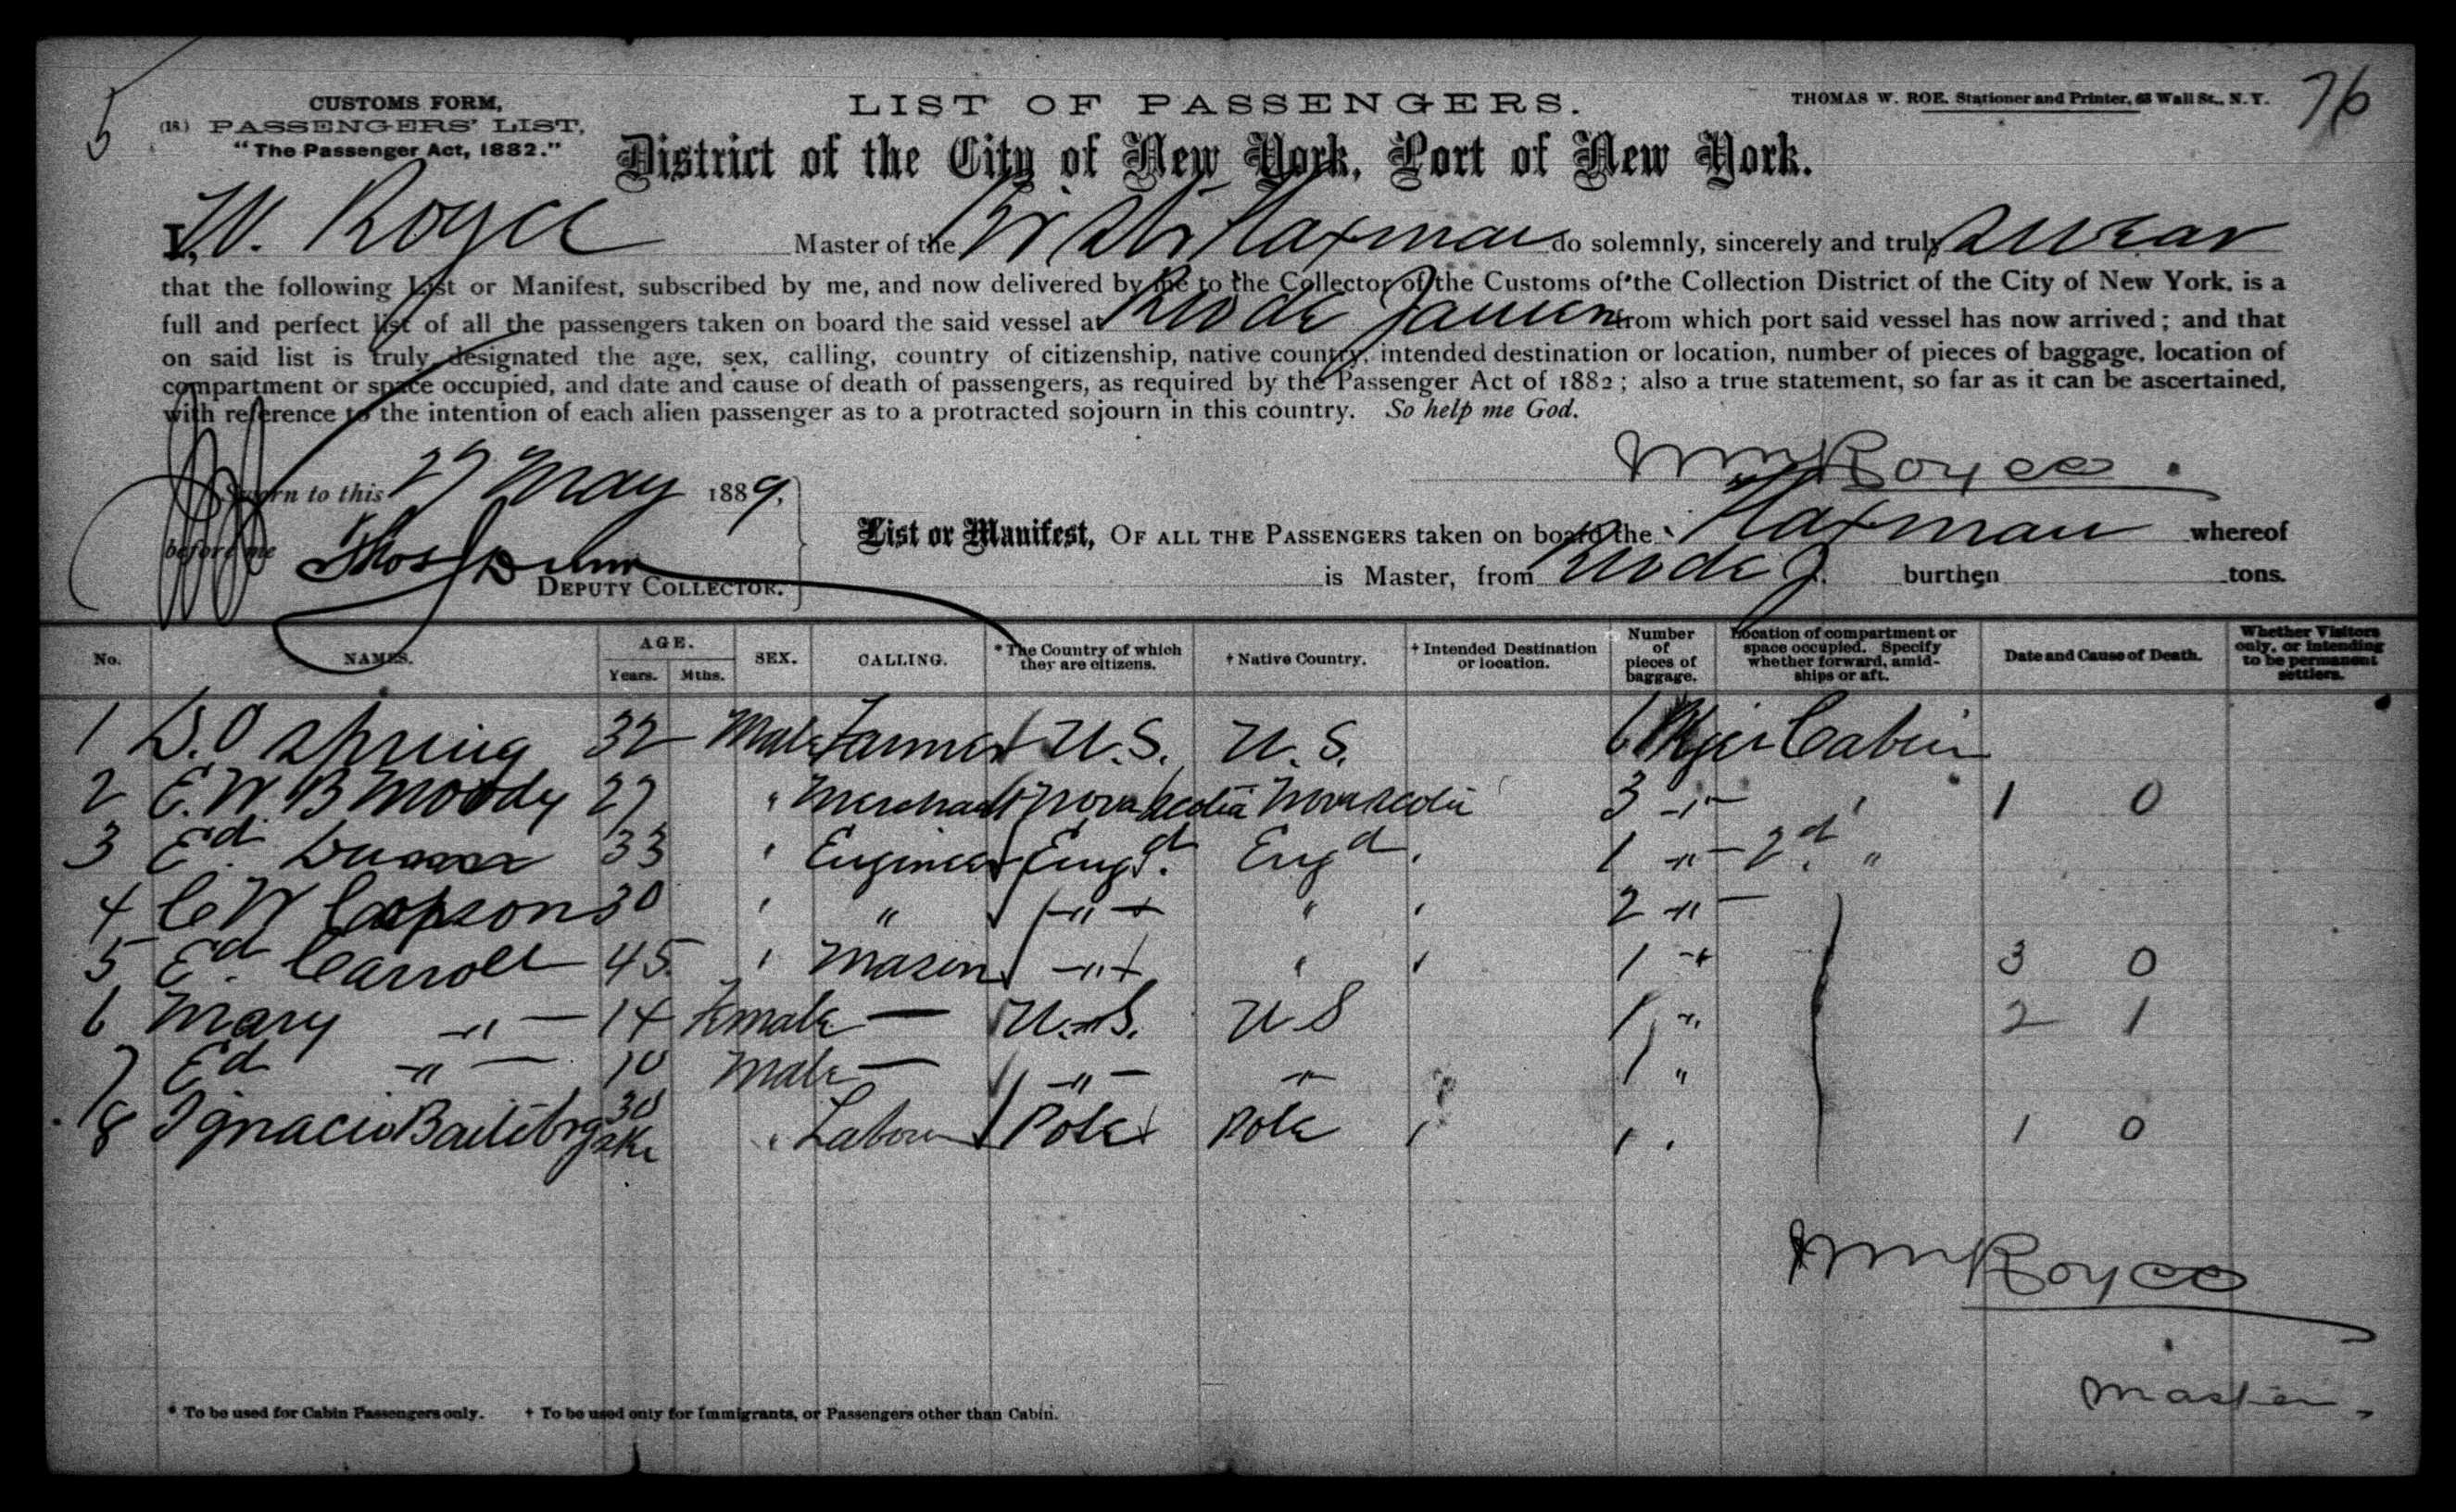 5
CUSTOMS FORM,
(18.) PASSENGERS' LIST,
"The Passenger Act, 1882."
LIST OF PASSENGERS.
THOMAS W. ROE. Stationer and Printer, 63 Wall St., N.Y.
76
District of the City of New York, Port of New York.
I, W. Royce Master of the Br Str Flaxman do solemnly, sincerely and truly swear
that the following List or Manifest, subscribed by me, and now delivered by me to the Collector of the Customs of the Collection District of the City of New York, is a
full and perfect list of all the passengers taken on board the said vessel at Rio de Janeiro from which port said vessel has now arrived; and that
on said list is truly designated the age, sex, calling, country of citizenship, native country, intended destination or location, number of pieces of baggage, location of
compartment or space occupied, and date and cause of death of passengers, as required by the Passenger Act of 1882; also a true statement, so far as it can be ascertained,
with reference to the intention of each alien passenger as to a protracted sojourn in this country. So help me God.
Wm Royce
Sworn to this 27 May 1889.
before me Thos Dunn
DEPUTY COLLECTOR.
List or Manifest, OF ALL THE PASSENGERS taken on board the Str Flaxman whereof
is Master, from Rio de J. burthen tons.
No. NAMES. AGE. Years. Mths. SEX. CALLING. * The Country of which they are citizens. † Native Country. † Intended Destination or location. Number of pieces of baggage. Location of compartment or space occupied. Specify whether forward, amidships or aft. Date and Cause of Death. Whether Visitors only, or intending to be permanent settlers.
1 D. O Spring 32 Male Farmer U.S. U.S. 6 Pkgs Cabin
2 E. W. B Moody 27 " Merchant Nova Scotia Nova Scotia 3 -"- " 1 0
3 Ed. 33 " Engineer Engd. Engd " 1 -"- 2d "
4 C W 30 " " -"- " " 2 -"-
5 Ed. Carroll 45 " Mason -"- " " 1 " 3 0
6 Mary -"- 14 Female — U.S. U S 1 " 2 1
7 Ed -"- 10 Male — -"- " 1 "
8 Ignacio 30 " Labour Pole Pole " 1 " 1 0
Wm Royce
Master.
* To be used for Cabin Passengers only. † To be used only for Immigrants, or Passengers other than Cabin.